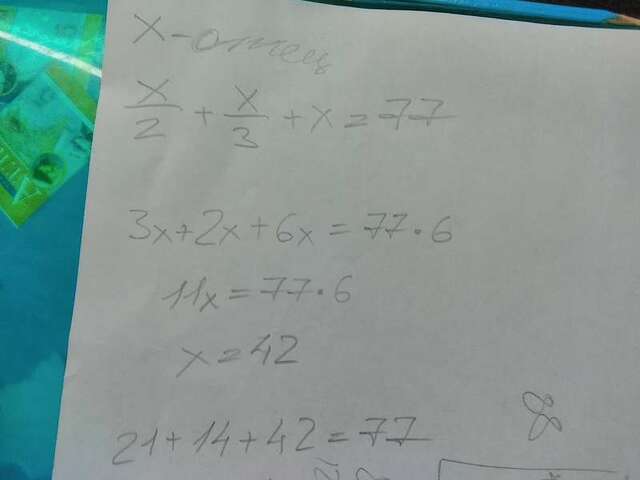 x - отец
x/2 + x/3 + x = 77
3x+2x+6x=77·6
11x=77·6
x=42
21+14+42=77